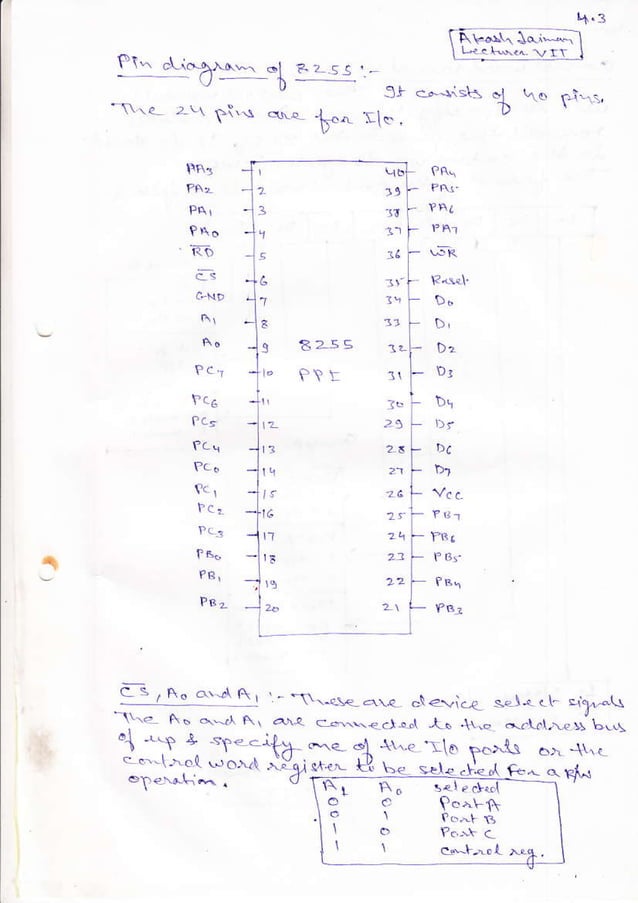 4.3
Akash Jaiman
Lecturer VIT
Pin diagram of 8255 :-
It consists of 40 pins.
The 24 pins are for I/o.
PA3 1 40 PA4
PA2 2 39 PA5
PA1 3 38 PA6
PA0 4 37 PA7
R̅D̅ 5 36 W̅R̅
C̅S̅ 6 35 Reset
GND 7 34 D0
A1 8 33 D1
A0 9 8255 32 D2
PC7 10 PPI 31 D3
PC6 11 30 D4
PC5 12 29 D5
PC4 13 28 D6
PC0 14 27 D7
PC1 15 26 Vcc
PC2 16 25 PB7
PC3 17 24 PB6
PB0 18 23 PB5
PB1 19 22 PB4
PB2 20 21 PB3
C̅S̅, A0 and A1 :- These are device select signals
The A0 and A1 are connected to the address bus
of up & specify one of the I/o ports or the
control word register to be selected for a R/W
operation.
A1 A0 selected
0 0 Port A
0 1 Port B
1 0 Port C
1 1 control reg.